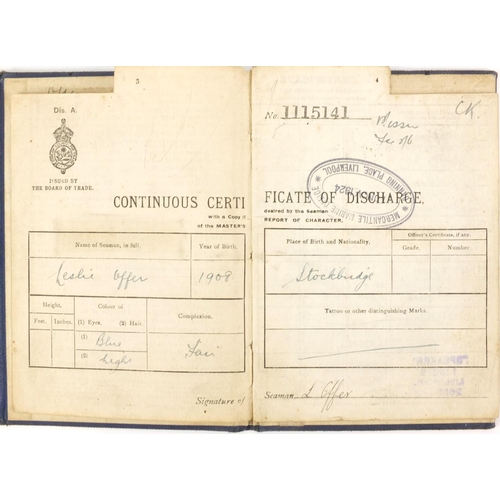 3
4
Dis. A.
No. 1115141
CK.
ISSUED BY
THE BOARD OF TRADE.
MERCANTILE MARINE OFFICE
LIVERPOOL
1924
CONTINUOUS CERTIFICATE OF DISCHARGE,
with a Copy
desired by the Seaman
of the MASTER'S REPORT OF CHARACTER.
Name of Seaman, in full. Year of Birth.
Leslie Offer 1908
Place of Birth and Nationality. Officer's Certificate, if any.
Grade. Number.
Stockbridge
Height. Colour of Complexion.
Feet. Inches. (1) Eyes. (2) Hair.
(1) Blue
(2) Light
Fair
Tattoo or other distinguishing Marks.
Signature of Seaman L Offer